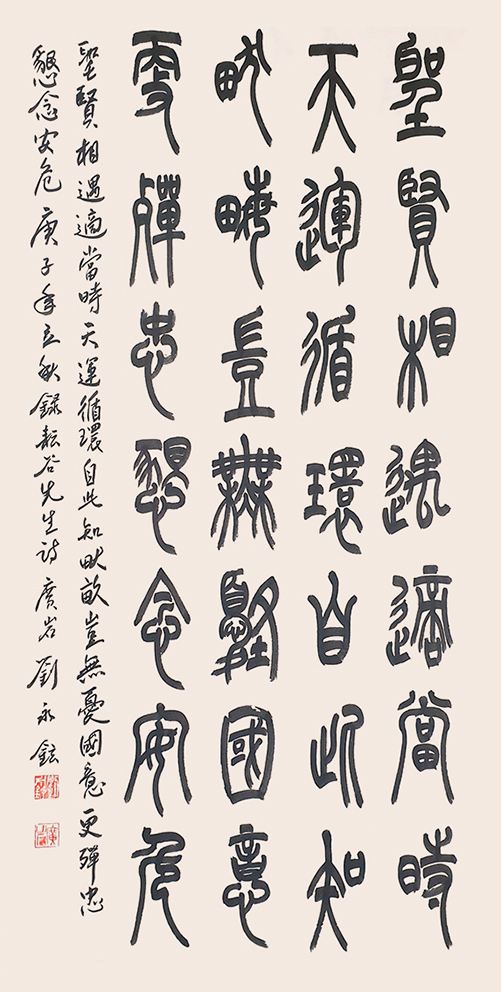 聖賢相遇適當時
天運循環自此知
畎畮豈無憂國意
更殫忠懇念安危
聖賢相遇適當時天運循環自此知畎畝豈無憂國意更殫忠
懇念安危庚子年立秋錄耘谷先生詩廣岩劉永鉉